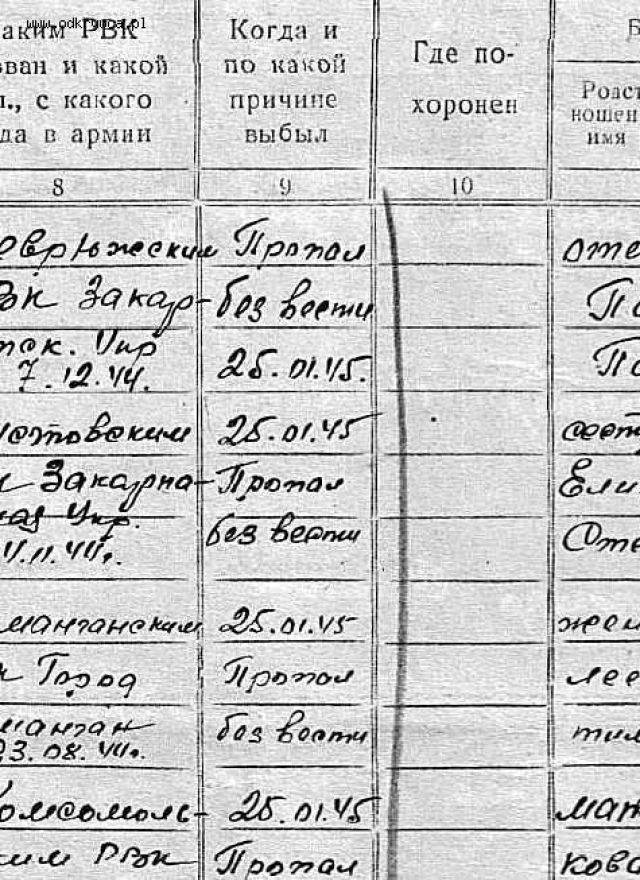 www.odkrywca.pl
аким РВК
зван и какой
л., с какого
да в армии
Когда и
по какой
причине
выбыл
Где по-
хоронен
Б
Родст
ношен
имя
8
9
10
Пропал
оте
РВК Закар-
без вести
По
тск. Укр
7.12.44.
25.01.45.
По
25.01.45
сест
Закарпа-
Пропал
Ели
Укр.
без вести
Оте
11.44г.
манганским
25.01.45
жен
Город
Пропал
лее
манган
без вести
тим
23.08.44г.
омсомоль-
25.01.45
мат
ким РВК
Пропал
кова